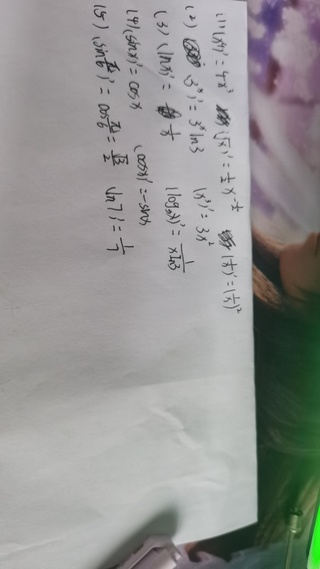 (1) (x⁴)' = 4x³ (√x)' = ½x^-½ (1/x)' = (1/x)²
(2) (3ˣ)' = 3ˣln3 (x³)' = 3x²
(3) (lnx)' = 1/x (log₃x)' = 1/xln3
(4) (sinx)' = cosx (cosx)' = -sinx
(5) (sinπ/6)' = cosπ/6 = √3/2 (ln7)' = 1/7